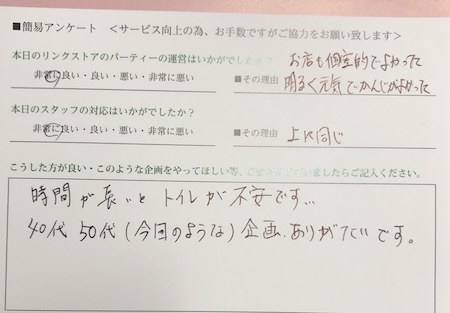 ■簡易アンケート ＜サービス向上の為、お手数ですがご協力をお願い致します＞
本日のリンクストアのパーティーの運営はいかがでしたか？
お店も個室的でよかった
非常に良い・良い・悪い・非常に悪い
■その理由 明るく元気でかんじがよかった
本日のスタッフの対応はいかがでしたか？
非常に良い・良い・悪い・非常に悪い
■その理由 上に同じ
こうした方が良い・このような企画をやってほしい等、ございましたらご記入ください。
時間が長いとトイレが不安です…
40代 50代（今回のような）企画、ありがたいです。